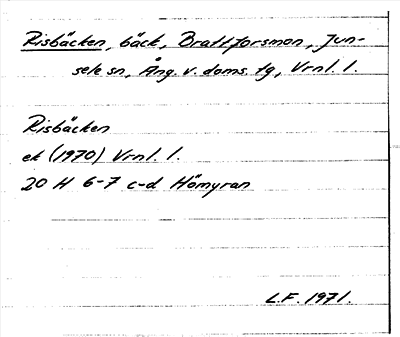 Risbäcken, bäck, Brattforsmon, Jun-
sele sn, Ång. v. doms. tg, Vrnl. l.
Risbäcken
ek (1970) Vrnl. l.
20 H 6-7 c-d Hömyran
L.F. 1971.